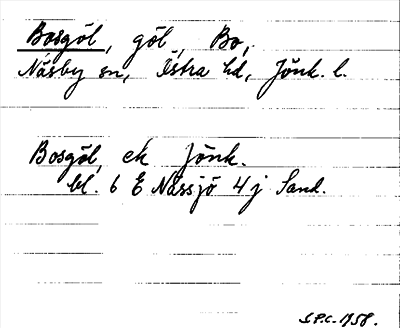 Bosgöl, göl, Bo,
Näsby sn, Östra hd, Jönk. l.
Bosgöl, ek Jönk.
bl. 6 E Nässjö 4 j Sand.
S.P.C. 1958.